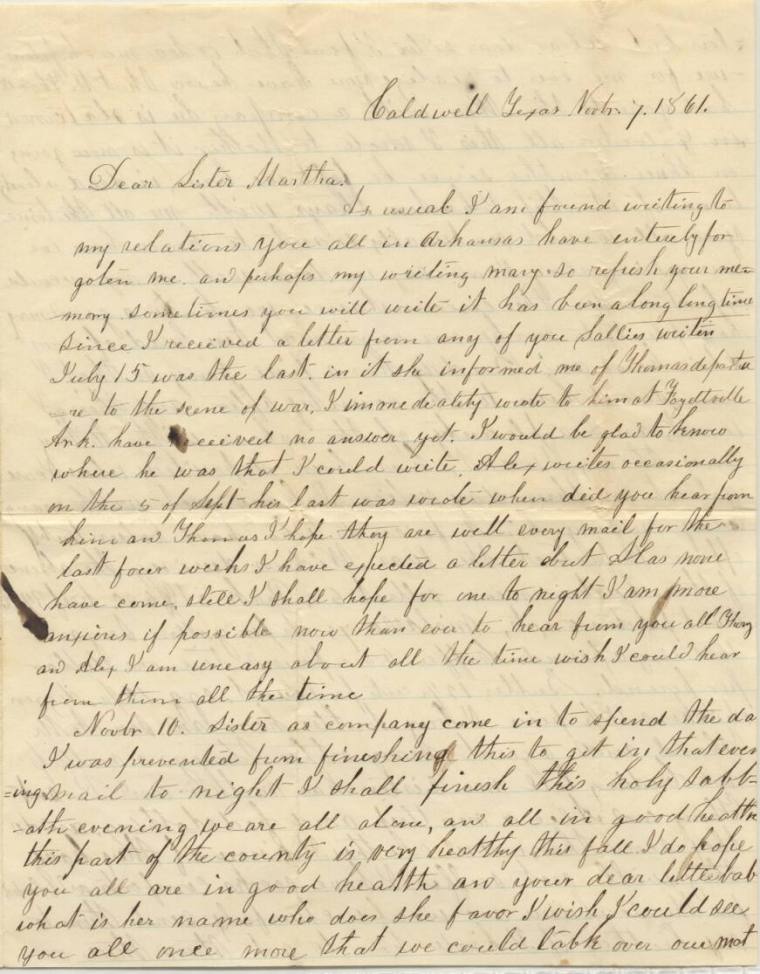 Caldwell Texas Novbr 7. 1861.
Dear Sister Martha.
As usual I am found writing to
my relations you all in Arkansas have entirely for
goten me. and perhaps my writing may so refresh your me=
mory sometimes you will write it has been a long long time
since I received a letter from any of you Sallies writen
July 15 was the last. in it she informed me of Thomas departu
re to the scene of war, I immedeatily wrote to him at
Ark. have received no answer yet. I would be glad to know
where he was that I could write. Alex writes occasionally
on the 5 of Sept his last was wrote when did you hear from
him an Thomas I hope they are well every mail for the
last four weeks I have expected a letter but Alas none
have come, still I shall hope for one to night I am more
anxious if possible now than ever to hear from you all Thom
an Alex I am uneasy about all the time wish I could hear
from them all the time
Novbr 10. Sister as company come in to spend the da
I was prevented from fineshing this to get in that even
=ing mail to night I shall finesh this, holy Sabb=
=ath evening, we are all alone, an all in good health
this part of the county is very healthy this fall I do hope
you all are in good health an your dear little bab
what is her name who does she favor I wish I could see
you all once more that we could talk over our mot